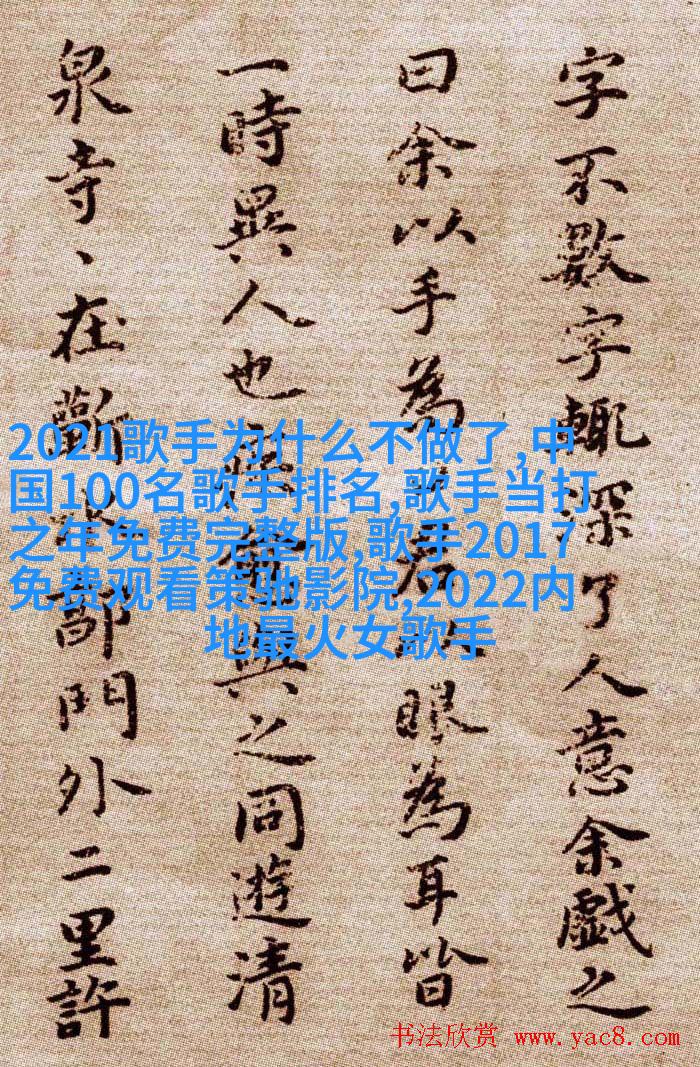 字不數字輙深了人意余戲之
曰余以手為君以眼為耳皆
一時異人也與之同遊清
泉寺、在蘄水郭門外二里許
2021歌手为什么不做了,中
国100名歌手排名,歌手当打
之年免费完整版,歌手2017
免费观看策驰影院,2022内
地最火女歌手
书法欣赏 www.yac8.com